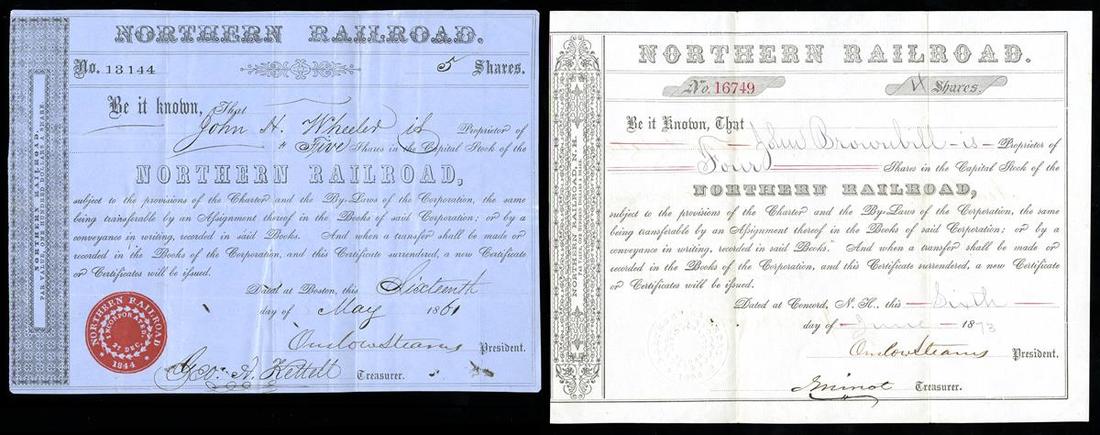 NORTHERN RAILROAD.
No. 13144 5 Shares.
Be it known, That
John H. Wheeler is Proprietor of
" Five Shares in the Capital Stock of the
NORTHERN RAILROAD,
subject to the provisions of the Charter and the By-Laws of the Corporation, the same
being transferable by an Assignment thereof in the Books of said Corporation; or by a
conveyance in writing, recorded in said Books. And when a transfer shall be made or
recorded in the Books of the Corporation, and this Certificate surrendered, a new Certificate
or Certificates will be issued.
Dated at Boston, this Sixteenth
day of May 1861
Onslow Stearns President.
Geo. A. Kettell Treasurer.
NORTHERN RAILROAD
INCORPORATED
27 DEC.
1844
NORTHERN RAILROAD,
PAR VALUE ONE HUNDRED DOLLARS PER SHARE.
NORTHERN RAILROAD.
No. 16749 4 Shares.
Be it Known, That John Brownbill is Proprietor of
Four Shares in the Capital Stock of the
NORTHERN RAILROAD,
subject to the provisions of the Charter and the By-Laws of the Corporation, the same
being transferable by an Assignment thereof in the Books of said Corporation; or by a
conveyance in writing, recorded in said Books. And when a transfer shall be made or
recorded in the Books of the Corporation, and this Certificate surrendered, a new Certificate
or Certificates will be issued.
Dated at Concord, N. H., this Sixth
day of June 1873
Onslow Stearns President.
J Minot Treasurer.
NORTHERN RAILROAD, N.H.